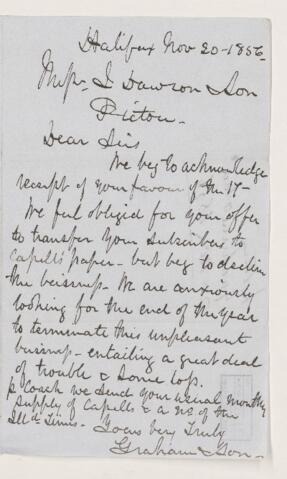 Halifax Nov 20-1856.
Messrs. J Dawson & Son
Pictou-
Dear Sirs
We beg to acknowledge
receipt of your favour of the 17-
We feel obliged for your offer
to transfer your subscribers to
Capells' paper- but beg to decline
the business- We are anxiously
looking for the end of the year
to terminate this unpleasant
business- entailing a great deal
of trouble & some loss.
p Coach we send your usual monthly
supply of Capells & a no of the
Illd. Times- Yours very truly
Graham & Son-